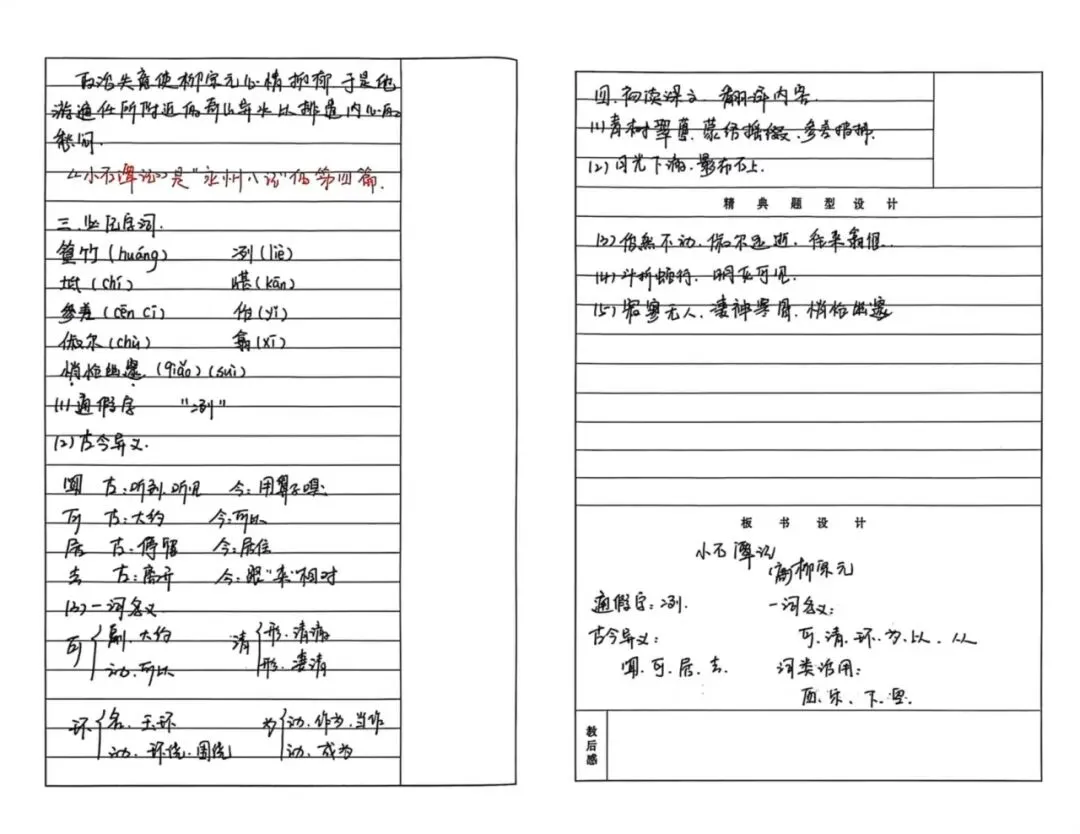 政治失意使柳宗元心情抑郁 于是他
游遍住所附近的奇山异水以排遣内心的
愁闷.
《小石潭记》是“永州八记”的第四篇.
三.生僻字词.
篁竹(huáng) 冽(liè)
坻(chí) 嵁(kān)
参差(cēn cī) 佁(yǐ)
俶尔(chù) 翕(xī)
悄怆幽邃.(qiǎo)(suì)
(1)通假字 “冽”
(2)古今异义.
闻 古:听到.听见 今:用鼻子嗅
可 古:大约 今:可以
居 古:停留 今:居住
去 古:离开 今:跟“来”相对
(3)一词多义.
可 副.大约 清 形.清澈
动.可以 形.凄清
环 名.玉环 为 动.作为.当作
动.环绕.围绕 动.成为
四.初读课文.翻译内容.
(1)青树翠蔓.蒙络摇缀.参差披拂.
(2)日光下澈.影布石上.
精典题型设计
(3)佁然不动.俶尔远逝.往来翕忽.
(4)斗折蛇行.明灭可见.
(5)寂寥无人.凄神寒骨.悄怆幽邃
板书设计
小石潭记
(唐)柳宗元
通假字:冽. 一词多义:
古今异义: 可.清.环.为.以.从
闻.可.居.去. 词类活用:
西.乐.下.空.
教后感